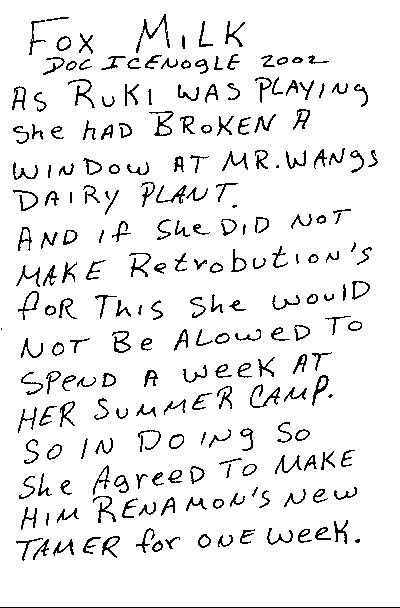 Fox MILK
DOC ICENOGLE 2002
AS RUKI WAS PLAYING
She hAD BROKEN A
WINDOW AT MR. WANGS
DAIRY PLANT.
AND if She DID NOT
MAKE Retrobution's
foR This She would
NOT Be ALOWED TO
SPEND A week AT
HER SUMMER CAMP.
SO IN DOING SO
She Agreed TO MAKE
HIM RENAMON'S NEW
TAMER for ONE week.